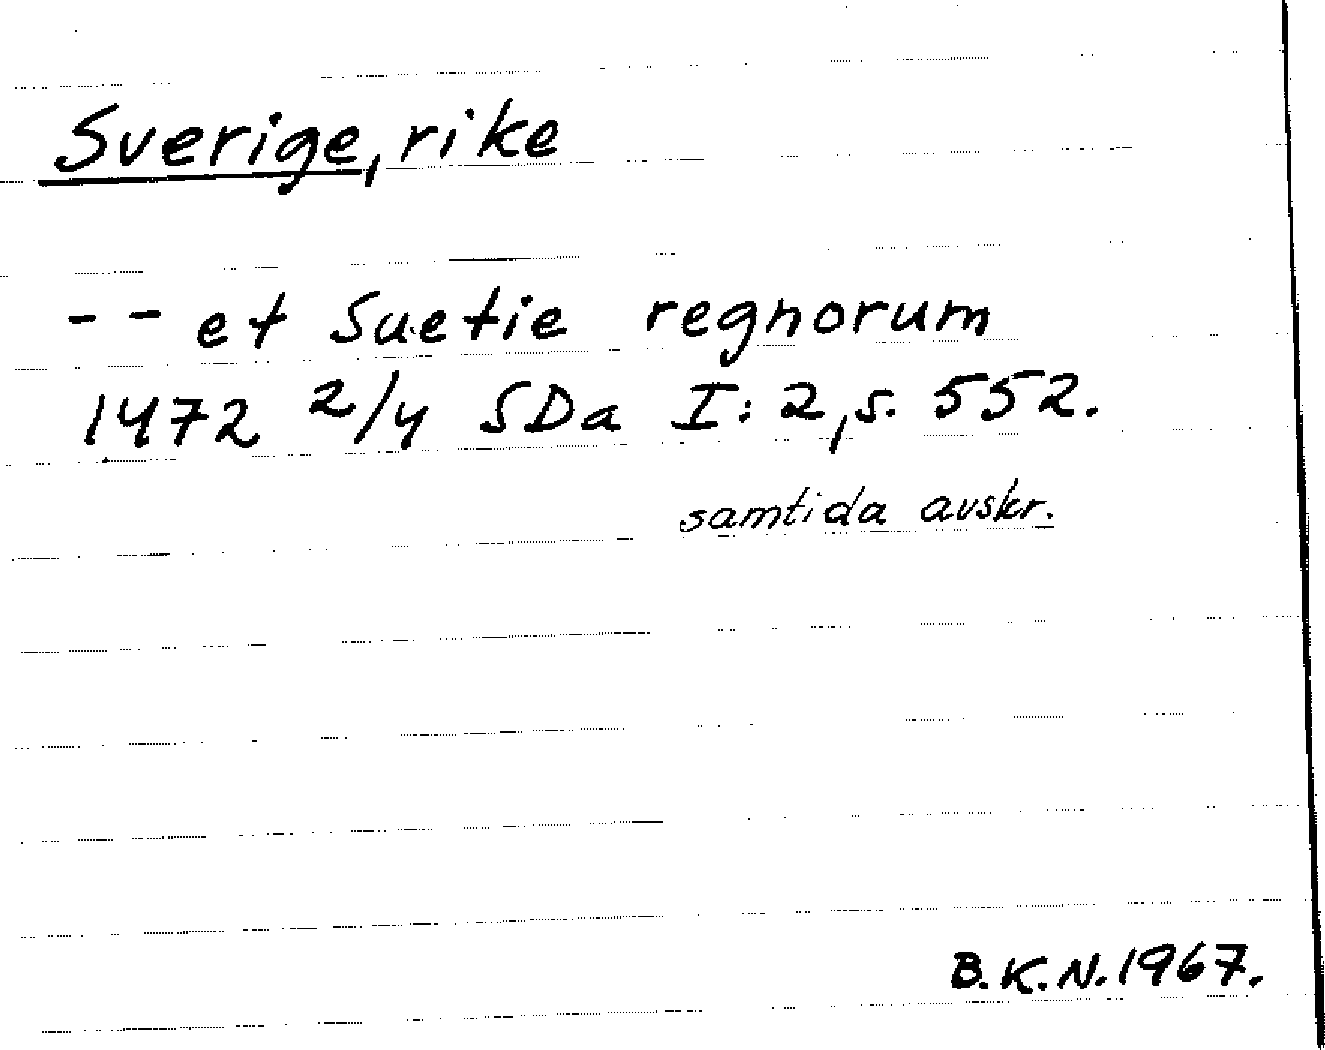 Sverige, rike
-- et Suetie regnorum
1472 2/4 SDa I:2, s. 552.
samtida avskr.
B.K.N. 1967.